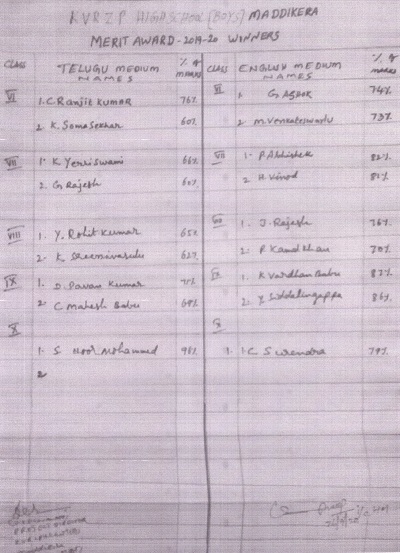 KVR Z P HIGH SCHOOL (BOYS) MADDIKERA
MERIT AWARD - 2019-20 WINNERS
CLASS TELUGU MEDIUM NAMES % of MARKS CLASS ENGLISH MEDIUM NAMES % of MARKS
VI VI
1. C Ranjit Kumar 76% 1. G Ashok 74%
2. K. Soma Sekhar 60% 2. M. Venkateswarlu 73%
VII VII
1. K Yerriswami 66% 1. P Abhishek 82%
2. G Rajesh 60% 2. H. Vinod 81%
VIII
1. Y. Rohit Kumar 65% 1. J. Rajesh 76%
2. K Sreenivasulu 62% 2. P Kamal Khan 70%
IX
1. D. Pavan Kumar 1. K Vardhan Babu 87%
2. C Mahesh Babu 2. Y. Siddalingappa 86%
X X
1. S Noor Mohammed 98% 1. C Surendra 79%
2